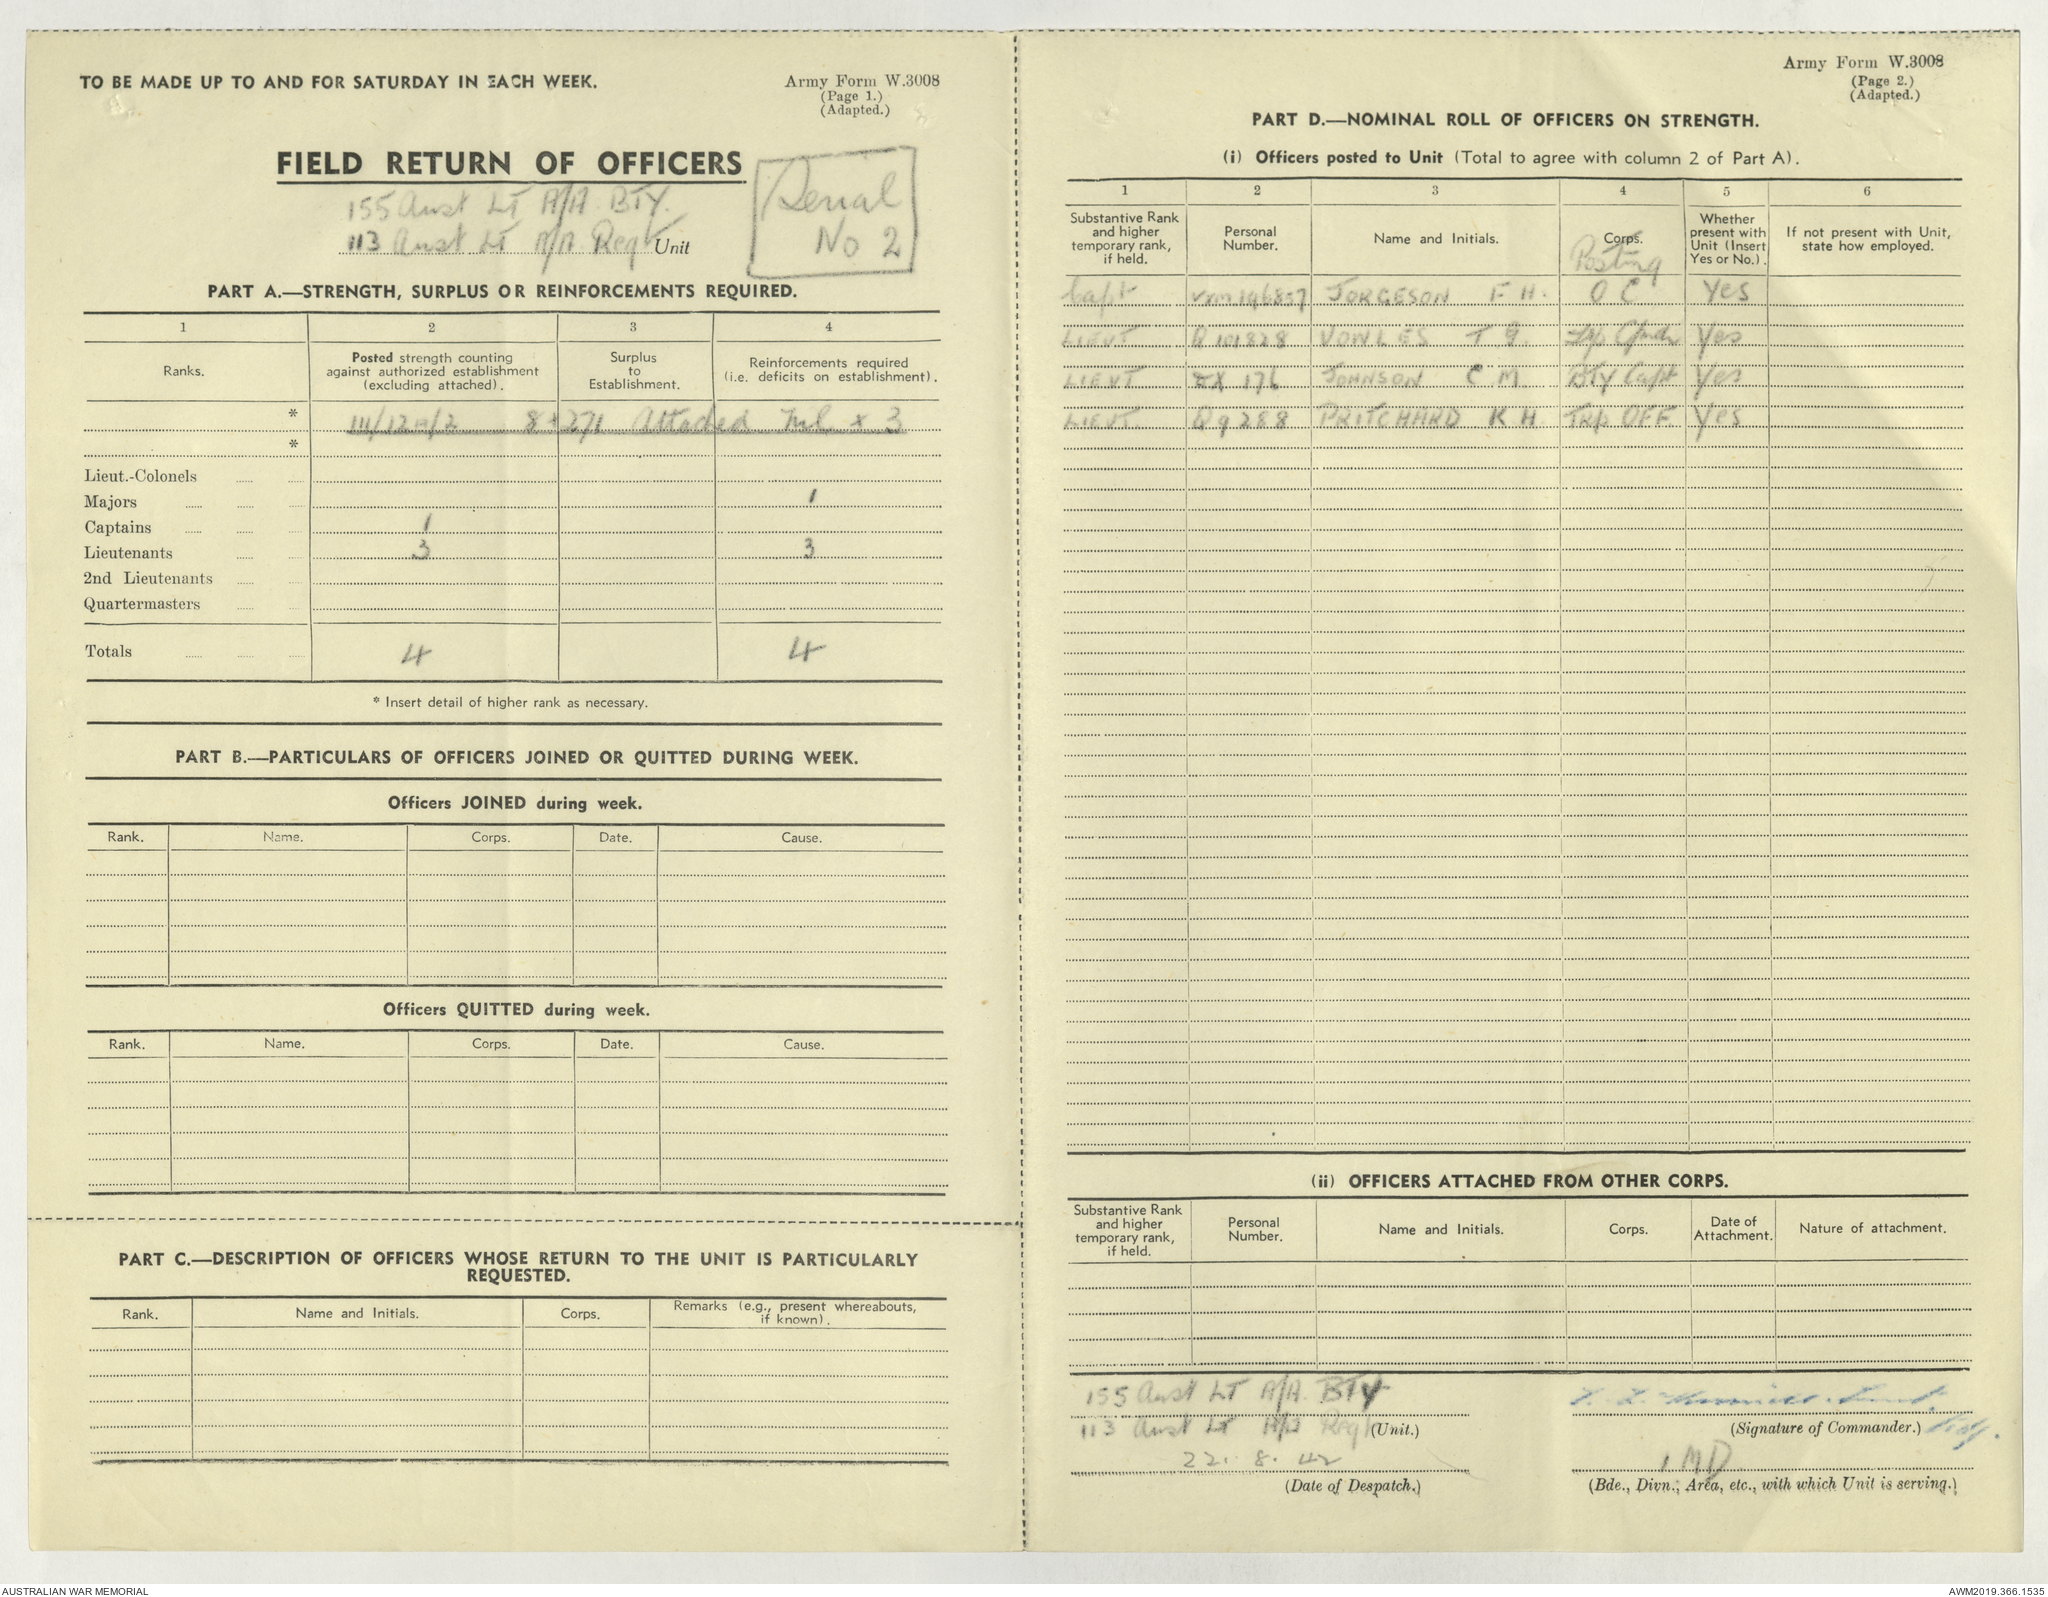 TO BE MADE UP TO AND FOR SATURDAY IN EACH WEEK.
Army Form W.3008
(Page 1.)
(Adapted.)
FIELD RETURN OF OFFICERS
155 Aust LT A/A BTY.
113 Aust Lt A/A Regt Unit
Serial
No 2
PART A.—STRENGTH, SURPLUS OR REINFORCEMENTS REQUIRED.
1 2 3 4
Ranks.
Posted strength counting
against authorized establishment
(excluding attached).
Surplus
to
Establishment.
Reinforcements required
(i.e. deficits on establishment).
*
8 + 271 Attached x 3
*
Lieut.-Colonels
Majors 1
Captains 1
Lieutenants 3 3
2nd Lieutenants
Quartermasters
Totals 4 4
* Insert detail of higher rank as necessary.
PART B.—PARTICULARS OF OFFICERS JOINED OR QUITTED DURING WEEK.
Officers JOINED during week.
Rank. Name. Corps. Date. Cause.
Officers QUITTED during week.
Rank. Name. Corps. Date. Cause.
PART C.—DESCRIPTION OF OFFICERS WHOSE RETURN TO THE UNIT IS PARTICULARLY
REQUESTED.
Rank. Name and Initials. Corps. Remarks (e.g., present whereabouts,
if known).
Army Form W.3008
(Page 2.)
(Adapted.)
PART D.—NOMINAL ROLL OF OFFICERS ON STRENGTH.
(i) Officers posted to Unit (Total to agree with column 2 of Part A).
1 2 3 4 5 6
Substantive Rank
and higher
temporary rank,
if held.
Personal
Number.
Name and Initials.
Corps.
Posting
Whether
present with
Unit (Insert
Yes or No.).
If not present with Unit,
state how employed.
Capt JORGESON F H. O C Yes
LIEUT Q101828 VOWLES T G. Yes
LIEUT 176 JOHNSON C M BTY Capt Yes
LIEUT Q9288 PRITCHARD K H. TRP OFF Yes
(ii) OFFICERS ATTACHED FROM OTHER CORPS.
Substantive Rank
and higher
temporary rank,
if held.
Personal
Number.
Name and Initials.
Corps.
Date of
Attachment.
Nature of attachment.
155 Aust LT A/A. BTY
113 Aust Lt A/A Regt (Unit.)
(Signature of Commander.)
22. 8. 42
(Date of Despatch.)
1 MD
(Bde., Divn., Area, etc., with which Unit is serving.)
AUSTRALIAN WAR MEMORIAL
AWM2019.366.1535